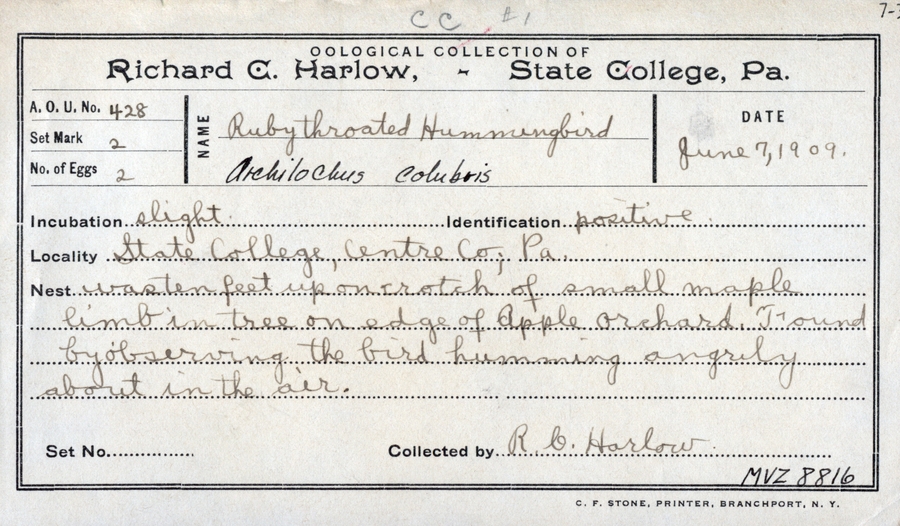 CC #1
OOLOGICAL COLLECTION OF
Richard C. Harlow, - State College, Pa.
A. O. U. No. 428
Set Mark 2
No. of Eggs 2
NAME
Rubythroated Hummingbird
Archilochus colubris
DATE
June 7, 1909.
Incubation slight. Identification positive.
Locality State College, Centre Co; Pa.
Nest was ten feet up on crotch of small maple
limb in tree on edge of Apple orchard. Found
by observing the bird humming angrily
about in the air.
Set No. Collected by R. C. Harlow
MVZ 8816
C. F. STONE, PRINTER, BRANCHPORT, N. Y.